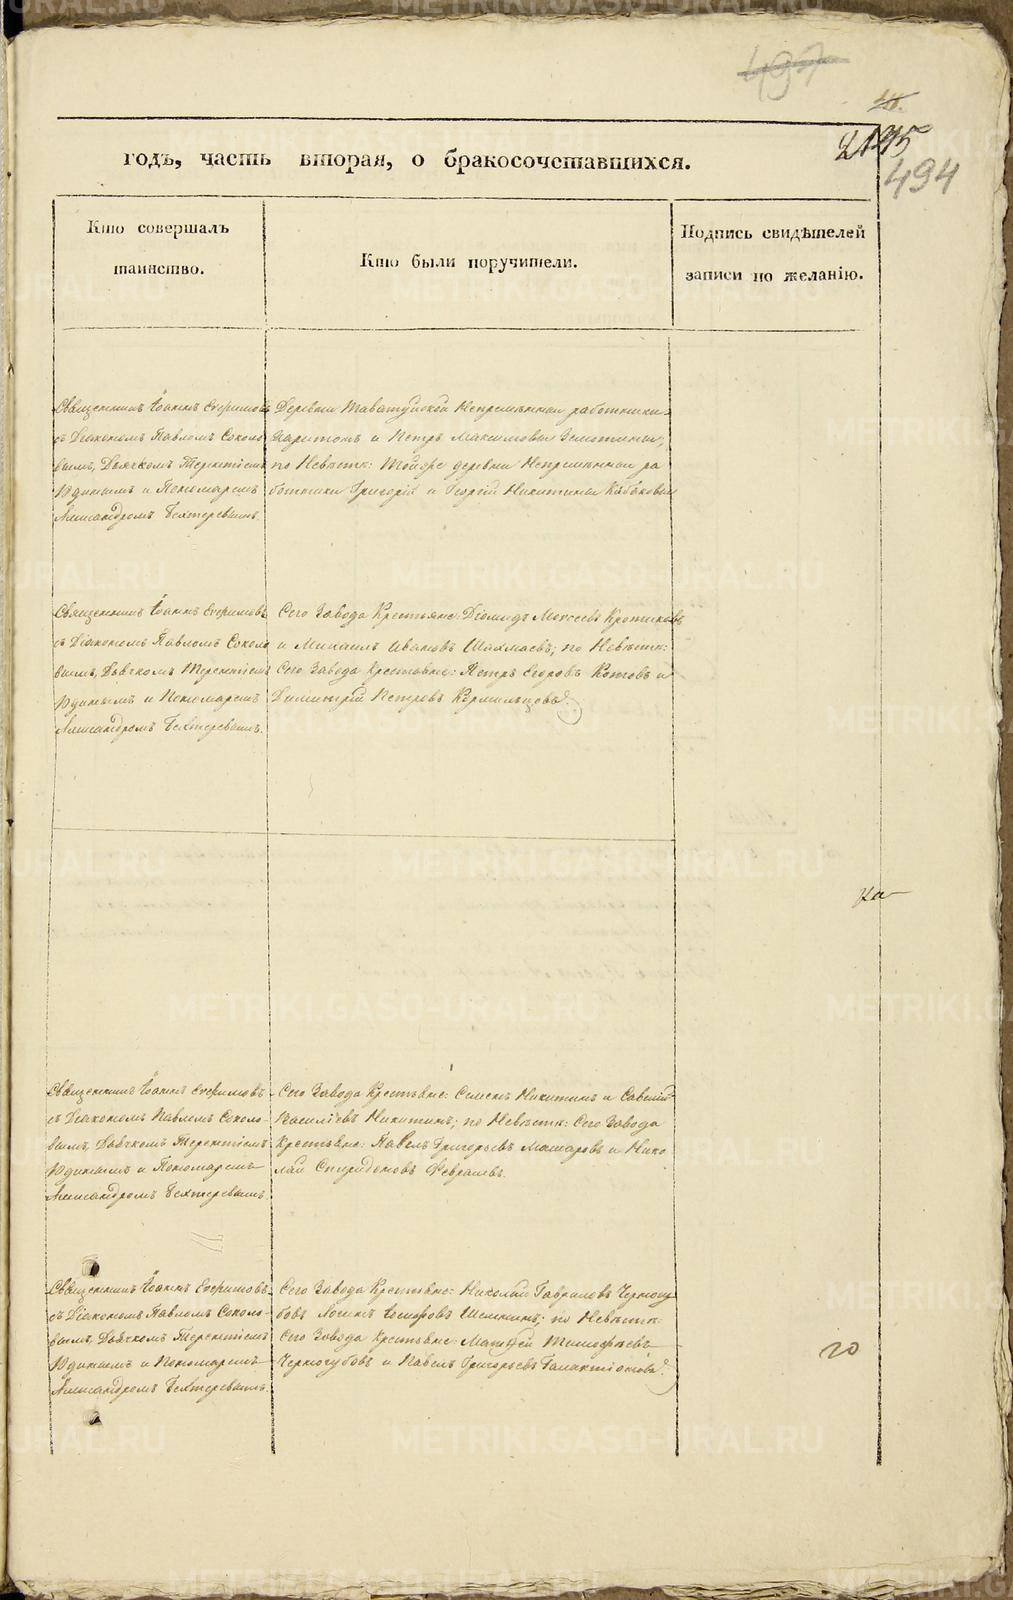 497
2145
494
годъ, часть вторая, о бракосочетавшихся.
Кто совершалъ
таинство.
Кто были поручители.
Подпись свидѣтелей
записи по желанію.
Священникъ Іоаннъ Ефимовъ
съ Діакономъ Павломъ Соколо-
вымъ, Дьячкомъ Терентіемъ
Юдинымъ и Пономаремъ
Александромъ Бехтеревымъ.
Деревни Таватуйской Непремѣнные работники:
Харитонъ и Петръ Максимовы
по Невѣстѣ: Тойже деревни Непремѣнные ра
ботники Григорій и Георгій Никитины Кабаковы
Священникъ Іоаннъ Ефимовъ
съ Діакономъ Павломъ Соколо
вымъ, Дьячкомъ Терентіемъ
Юдинымъ и Пономаремъ
Александромъ Бехтеревымъ.
Сего Завода Крестьяне: Діомидъ Моисеевъ Кротиковъ
и Михаилъ Ивановъ Шахмаевъ; по Невѣстѣ:
Сего Завода Крестьяне: Петръ Егоровъ Котовъ и
Димитрій Петровъ Кормильцовъ.
на
Священникъ Іоаннъ Ефимовъ
съ Діакономъ Павломъ Соколо-
вымъ, Дьячкомъ Терентіемъ
Юдинымъ и Пономаремъ
Александромъ Бехтеревымъ.
Сего Завода Крестьяне: Семенъ Никитинъ и Савелій
Василіевъ Никитинъ; по Невѣстѣ: Сего Завода
Крестьяне: Павелъ Григорьевъ Макаровъ и Нико
лай Спиридоновъ Февралевъ.
Священникъ Іоаннъ Ефимовъ
съ Діакономъ Павломъ Соколо-
вымъ, Дьячкомъ Терентіемъ
Юдинымъ и Пономаремъ
Александромъ Бехтеревымъ.
Сего Завода Крестьяне: Николай Гавриловъ Черногу
бовъ Логинъ Іосифовъ по Невѣстѣ:
Сего Завода Крестьяне: Матѳей Тимофѣевъ
Черногубовъ и Павелъ Григорьевъ Галактіоновъ.
го
METRIKI.GASO-URAL.RU